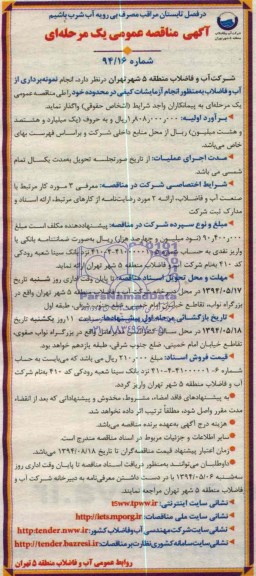 در فصل تابستان مراقب مصرف بی رویه آب شرب باشیم
آگهی مناقصه عمومی یک مرحله‌ای
شماره ۹۴/۱۶
شرکت آب و فاضلاب منطقه ۵ شهر تهران در نظر دارد، انجام نمونه‌برداری از
آب و فاضلاب به منظور انجام آزمایشات کیفی در محدوده خود را طی مناقصه عمومی
یک مرحله‌ای به پیمانکاران واجد شرایط (اشخاص حقوقی) واگذار نماید.
برآورد اولیه: ۱٫۸۰۸٫۰۰۰٫۰۰۰ ریال و به حروف (یک میلیارد و هشتصد
و هشت میلیون) ریال از محل منابع داخلی شرکت و براساس فهرست بهای
خاص می‌باشد.
مدت اجرای عملیات: از تاریخ صورتجلسه تحویل به مدت یکسال تمام
شمسی می باشد
شرایط اختصاصی شرکت در مناقصه: معرفی ۳ مورد کار مرتبط با
صنعت آب و فاضلاب، ارائه ۲ مورد رضایت‌نامه از کارهای مرتبط، ارائه اسناد و
مدارک ثبت شرکت
مبلغ و نوع سپرده شرکت در مناقصه: پیشنهاددهنده مکلف است مبلغ
۹۰٫۴۰۰٫۰۰۰ (نود میلیون و چهارصد هزار) ریال به صورت ضمانتنامه بانکی یا
واریز نقدی به حساب
کد ۴۱۰ به نام شرکت آب و فاضلاب منطقه ۵ شهر تهران ارائه نمایند.
مهلت و محل تحویل اسناد مناقصه: تا پایان وقت اداری روز شنبه تاریخ
۱۳۹۴/۰۵/۱۷ در محل دبیرخانه شرکت آب و فاضلاب منطقه ۵ شهر تهران واقع در
بزرگراه نواب، تقاطع خیابان امام خمینی، ضلع جنوب شرقی، طبقه اول
تاریخ بازگشائی مرحله اول پیشنهادها: ساعت ۱۱ روز یکشنبه تاریخ
۱۳۹۴/۰۵/۱۸ در محل سالن واقع در بزرگراه نواب صفوی،
تقاطع خیابان امام خمینی، ضلع جنوب شرقی، طبقه یازدهم خواهد بود.
قیمت فروش اسناد: مبلغ ۲۱۰٫۰۰۰ ریال می باشد که می‌بایست به حساب
شماره نزد بانک سینا شعبه رودکی کد ۴۱۰ به نام شرکت
آب و فاضلاب منطقه ۵ شهر تهران واریز گردد.
به پیشنهادهای فاقد امضاء، مشروط، مخدوش و پیشنهاداتی که بعد از انقضاء
مدت مقرر واصل شود، مطلقاً ترتیب اثر داده نخواهد شد.
هزینه درج آگهی به‌عهده برنده مناقصه می‌باشد.
سایر اطلاعات و جزئیات مربوط در اسناد مناقصه مندرج است.
زمان اعتبار پیشنهاد قیمت مناقصه‌گران تا تاریخ ۱۳۹۴/۰۸/۱۸ می‌باشد.
داوطلبان می‌توانند به‌منظور دریافت اسناد مناقصه تا پایان وقت اداری روز
سه‌شنبه ۱۳۹۴/۰۵/۰۶ با در دست داشتن معرفی‌نامه به دبیرخانه شرکت آب و
فاضلاب منطقه ۵ شهر تهران مراجعه نمایند.
نشانی سایت اینترنتی: t5ww.tpww.ir
نشانی سایت ملی مناقصات: http://iets.mporg.ir
نشانی سایت شرکت مهندسی آب و فاضلاب کشور: http:tender.nww.ir
نشانی سایت سامانه کشوری نظارت بر مناقصات: http://tender.bazresi.ir
روابط عمومی آب و فاضلاب منطقه ۵ تهران